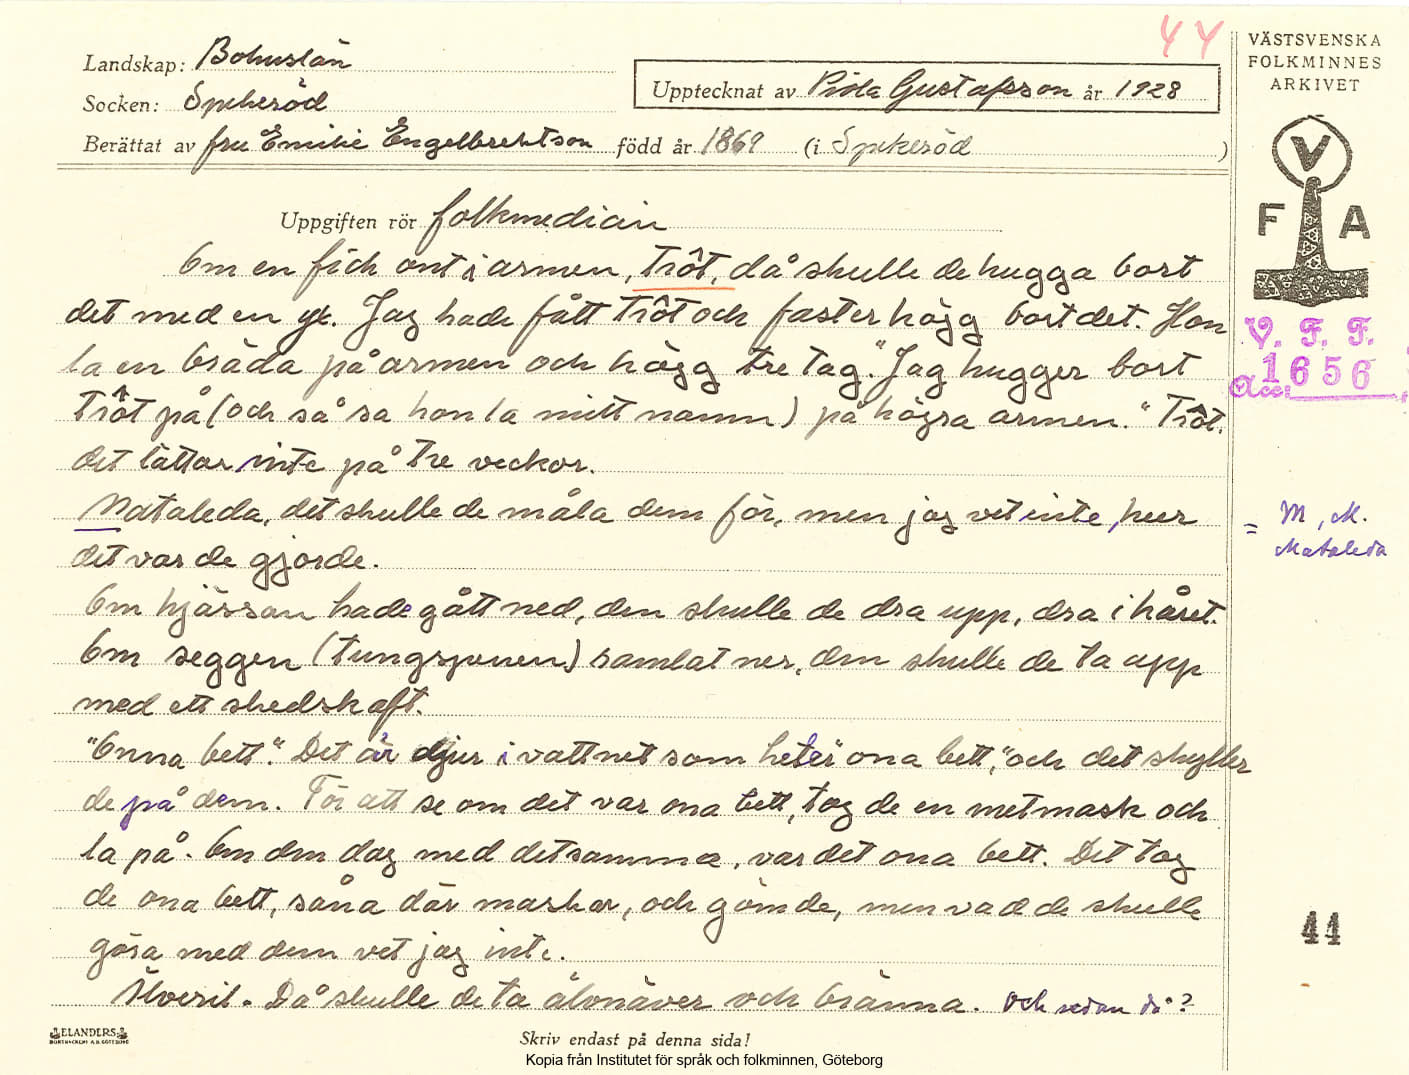 44
VÄSTSVENSKA
FOLKMINNES
ARKIVET
Landskap: Bohuslän
Socken: Spekeröd
Upptecknat av Gustafsson år 1928
Berättat av fru Emilie Engelbrektson född år 1869 (i Spekeröd)
V
F A
Uppgiften rör folkmedicin
Om en fick ont i armen, trôt, då skulle de hugga bort
det med en yx. Jag hade fått trôt och faster högg bort det. Hon
la en bräda på armen och högg tre tag. "Jag hugger bort
trôt på (och så sa hon la mitt namn) på högra armen." Trôt.
det lättar inte på tre veckor.
Mataleda, det skulle de måla dem för, men jag vet inte, hur
det var de gjorde.
Om hjässan hade gått ned, den skulle de dra upp, dra i håret.
Om seggen (tungspenen) ramlat ner, den skulle de ta upp
med ett skedskaft.
"Onna bett". Det är djur i vattnet som heter "ona bett," och det skyller
de på dem. För att se om det var ona bett, tog de en metmask och
la på. Om den dog med detsamma, var det ona bett. Det tog
de ona bett, såna där maskar, och gömde, men vad de skulle
göra med dem vet jag inte.
Älveril. Då skulle de ta älvnäver och bränna. Och sedan då?
V. F. F.
Acc: 1656
= M, M.
Mataleda
44
ELANDERS
BOKTRYCKERI A.B. GÖTEBORG
Skriv endast på denna sida!
Kopia från Institutet för språk och folkminnen, Göteborg